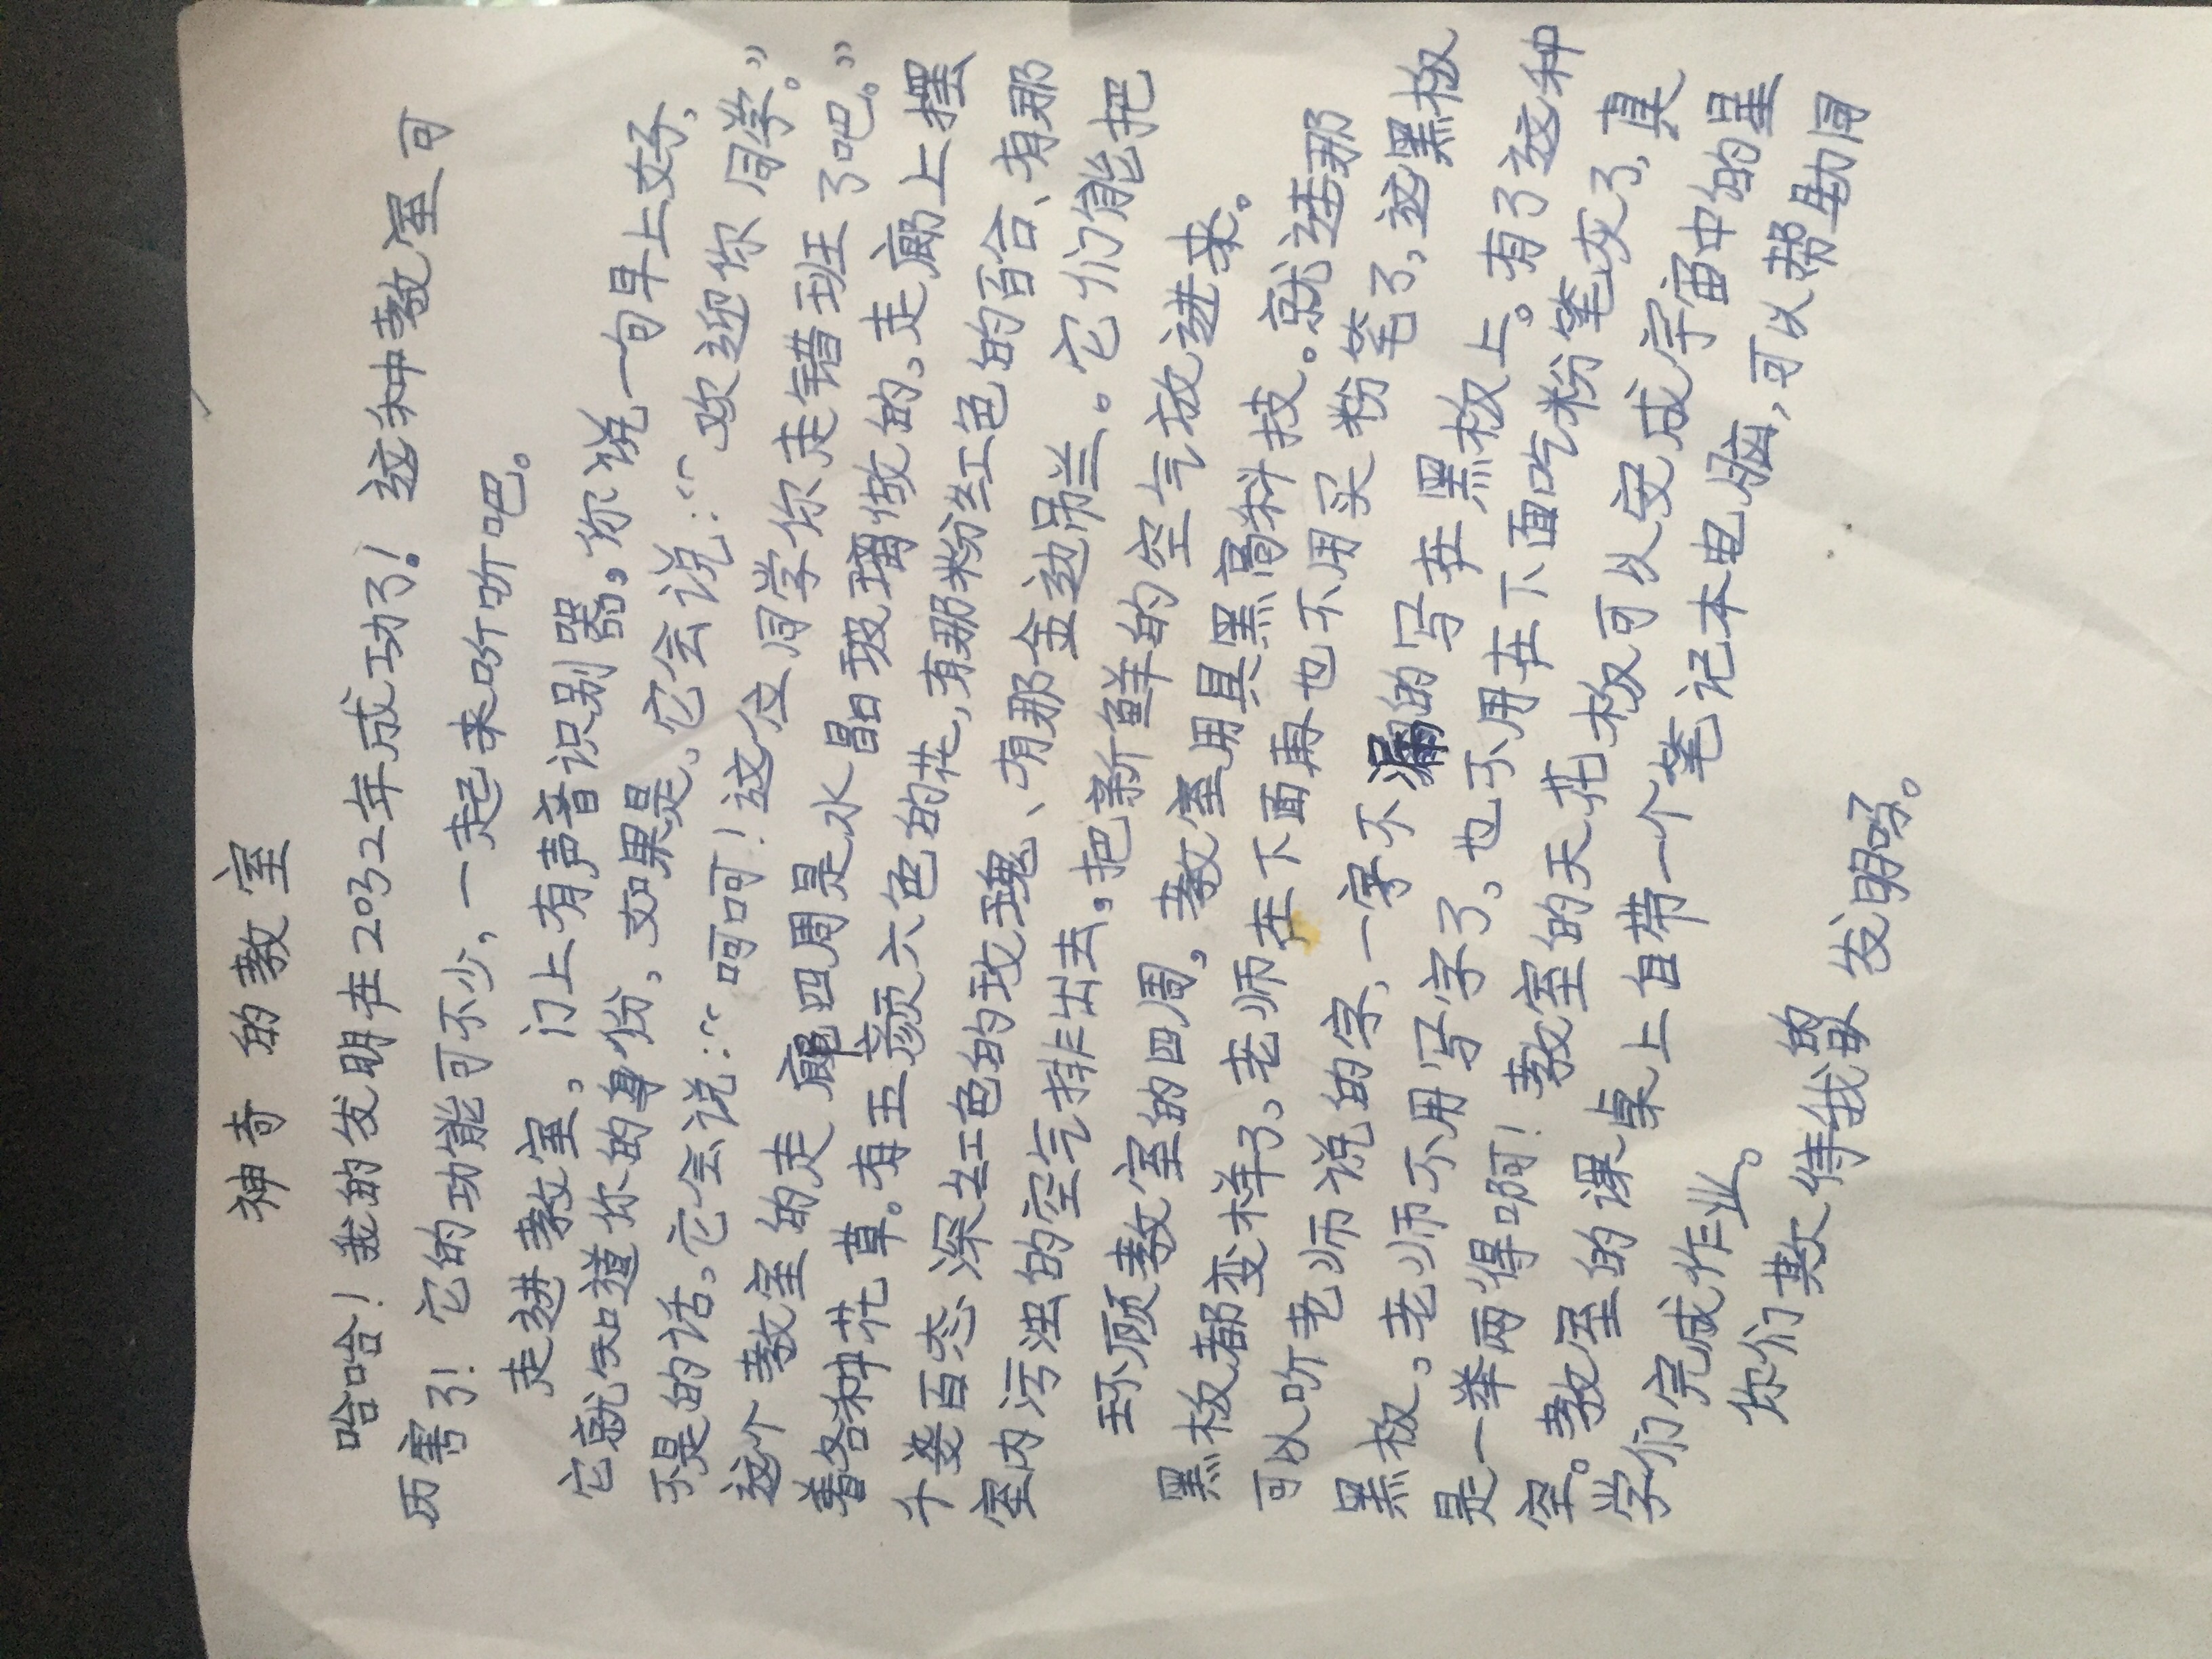 神奇的教室
哈哈！我的发明在2032年成功了！这种教室可
历害了！它的功能可不少，一起来听听吧。
走进教室，门上有声音识别器。你说一句早上好，
它就知道你的身份，如果是，它会说：“欢迎你同学。”
不是的话，它会说：“呵呵！这位同学你走错班了吧。”
这个教室的走廊四周是水晶玻璃做的，走廊上摆
着各种花草。有五颜六色的花，有那粉红色的百合、有那
千姿百态、深红色的玫瑰、有那金边吊兰。它们能把
室内污浊的空气排出去，把新鲜的空气放进来。
环顾教室的四周，教室用具黑高科技。就连那
黑板都变样了，老师在下面再也不用买粉笔了，这黑板
可以听老师说的字，一字不漏的写在黑板上。有了这种
黑板，老师不用写字了，也不用在下面吃粉笔灰了，真
是一举两得啊！教室的天花板可以变成宇宙中的星
空。教室的课桌上自带一个笔记本电脑，可以帮助同
学们完成作业。
你们期待我的发明吗。